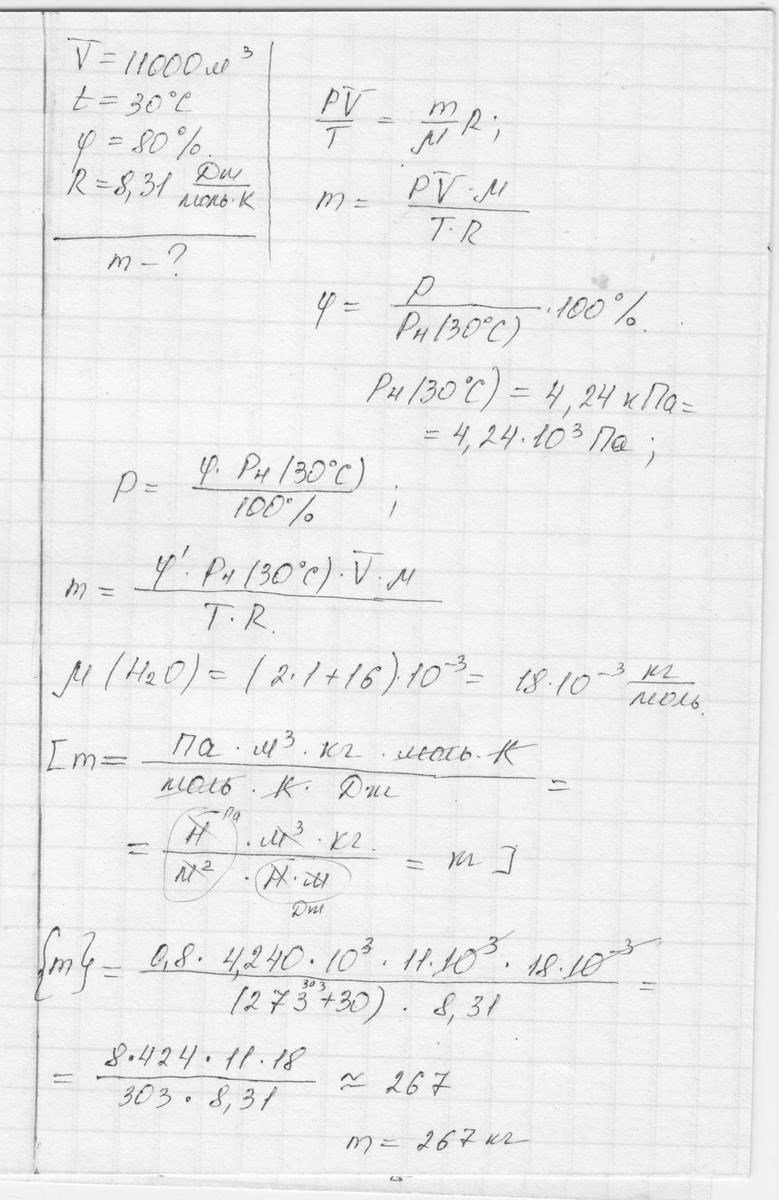 V = 11000 м³
t = 30°C
φ = 80%.
R = 8,31 Дж/моль·К
m - ?
PV/T = m/M R;
m = PV·M/T·R
φ = P/Pн(30°C) · 100%.
Pн(30°C) = 4,24 кПа =
= 4,24·10³ Па;
P = φ·Pн(30°C)/100% ;
m = φ'·Pн(30°C)·V·M/T·R.
M(H₂O) = (2·1+16)·10⁻³ = 18·10⁻³ кг/моль.
[m = Па·м³·кг·моль·К/моль·К·Дж =
= Н Па·м³·кг./м²·Н·м Дж = кг]
{m} = 0,8·4,240·10³·11·10³·18·10⁻³/(273+30) 303·8,31 =
= 8·424·11·18/303·8,31 ≈ 267
m = 267 кг